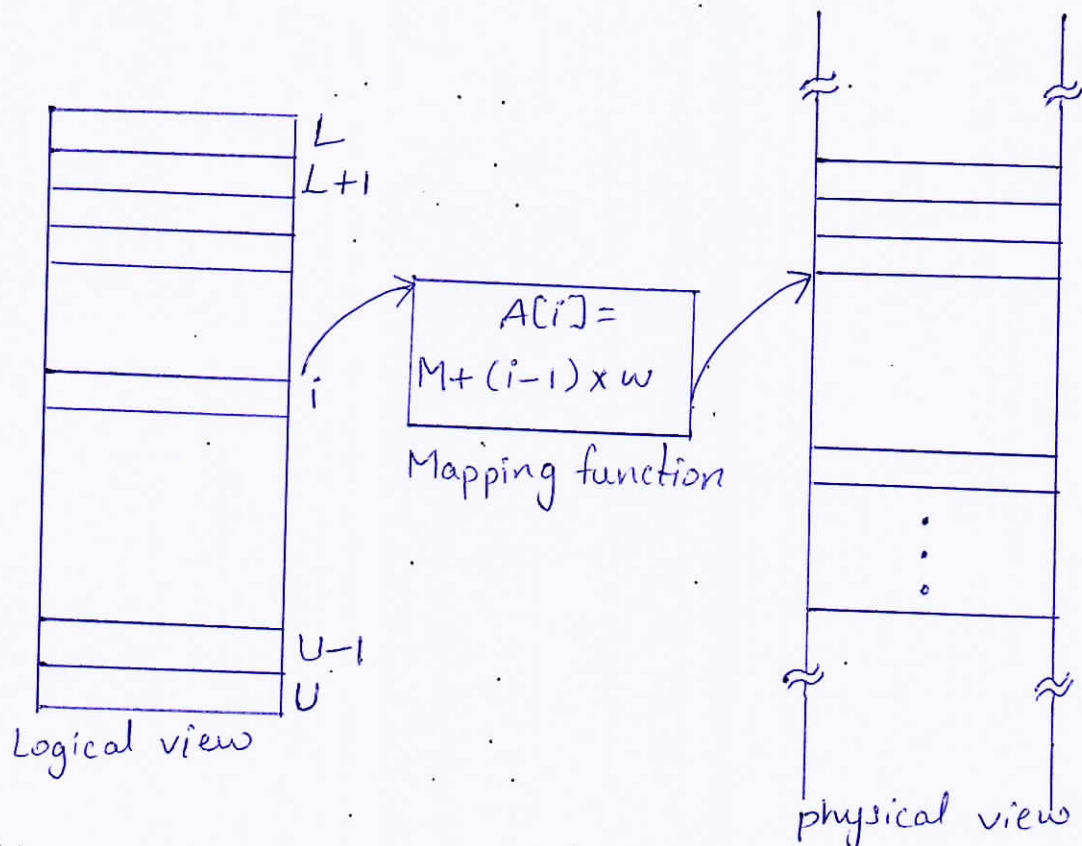 L
L+1
i
U-1
U
Logical view
A[i]=
M+(i-1)×w
Mapping function
physical view